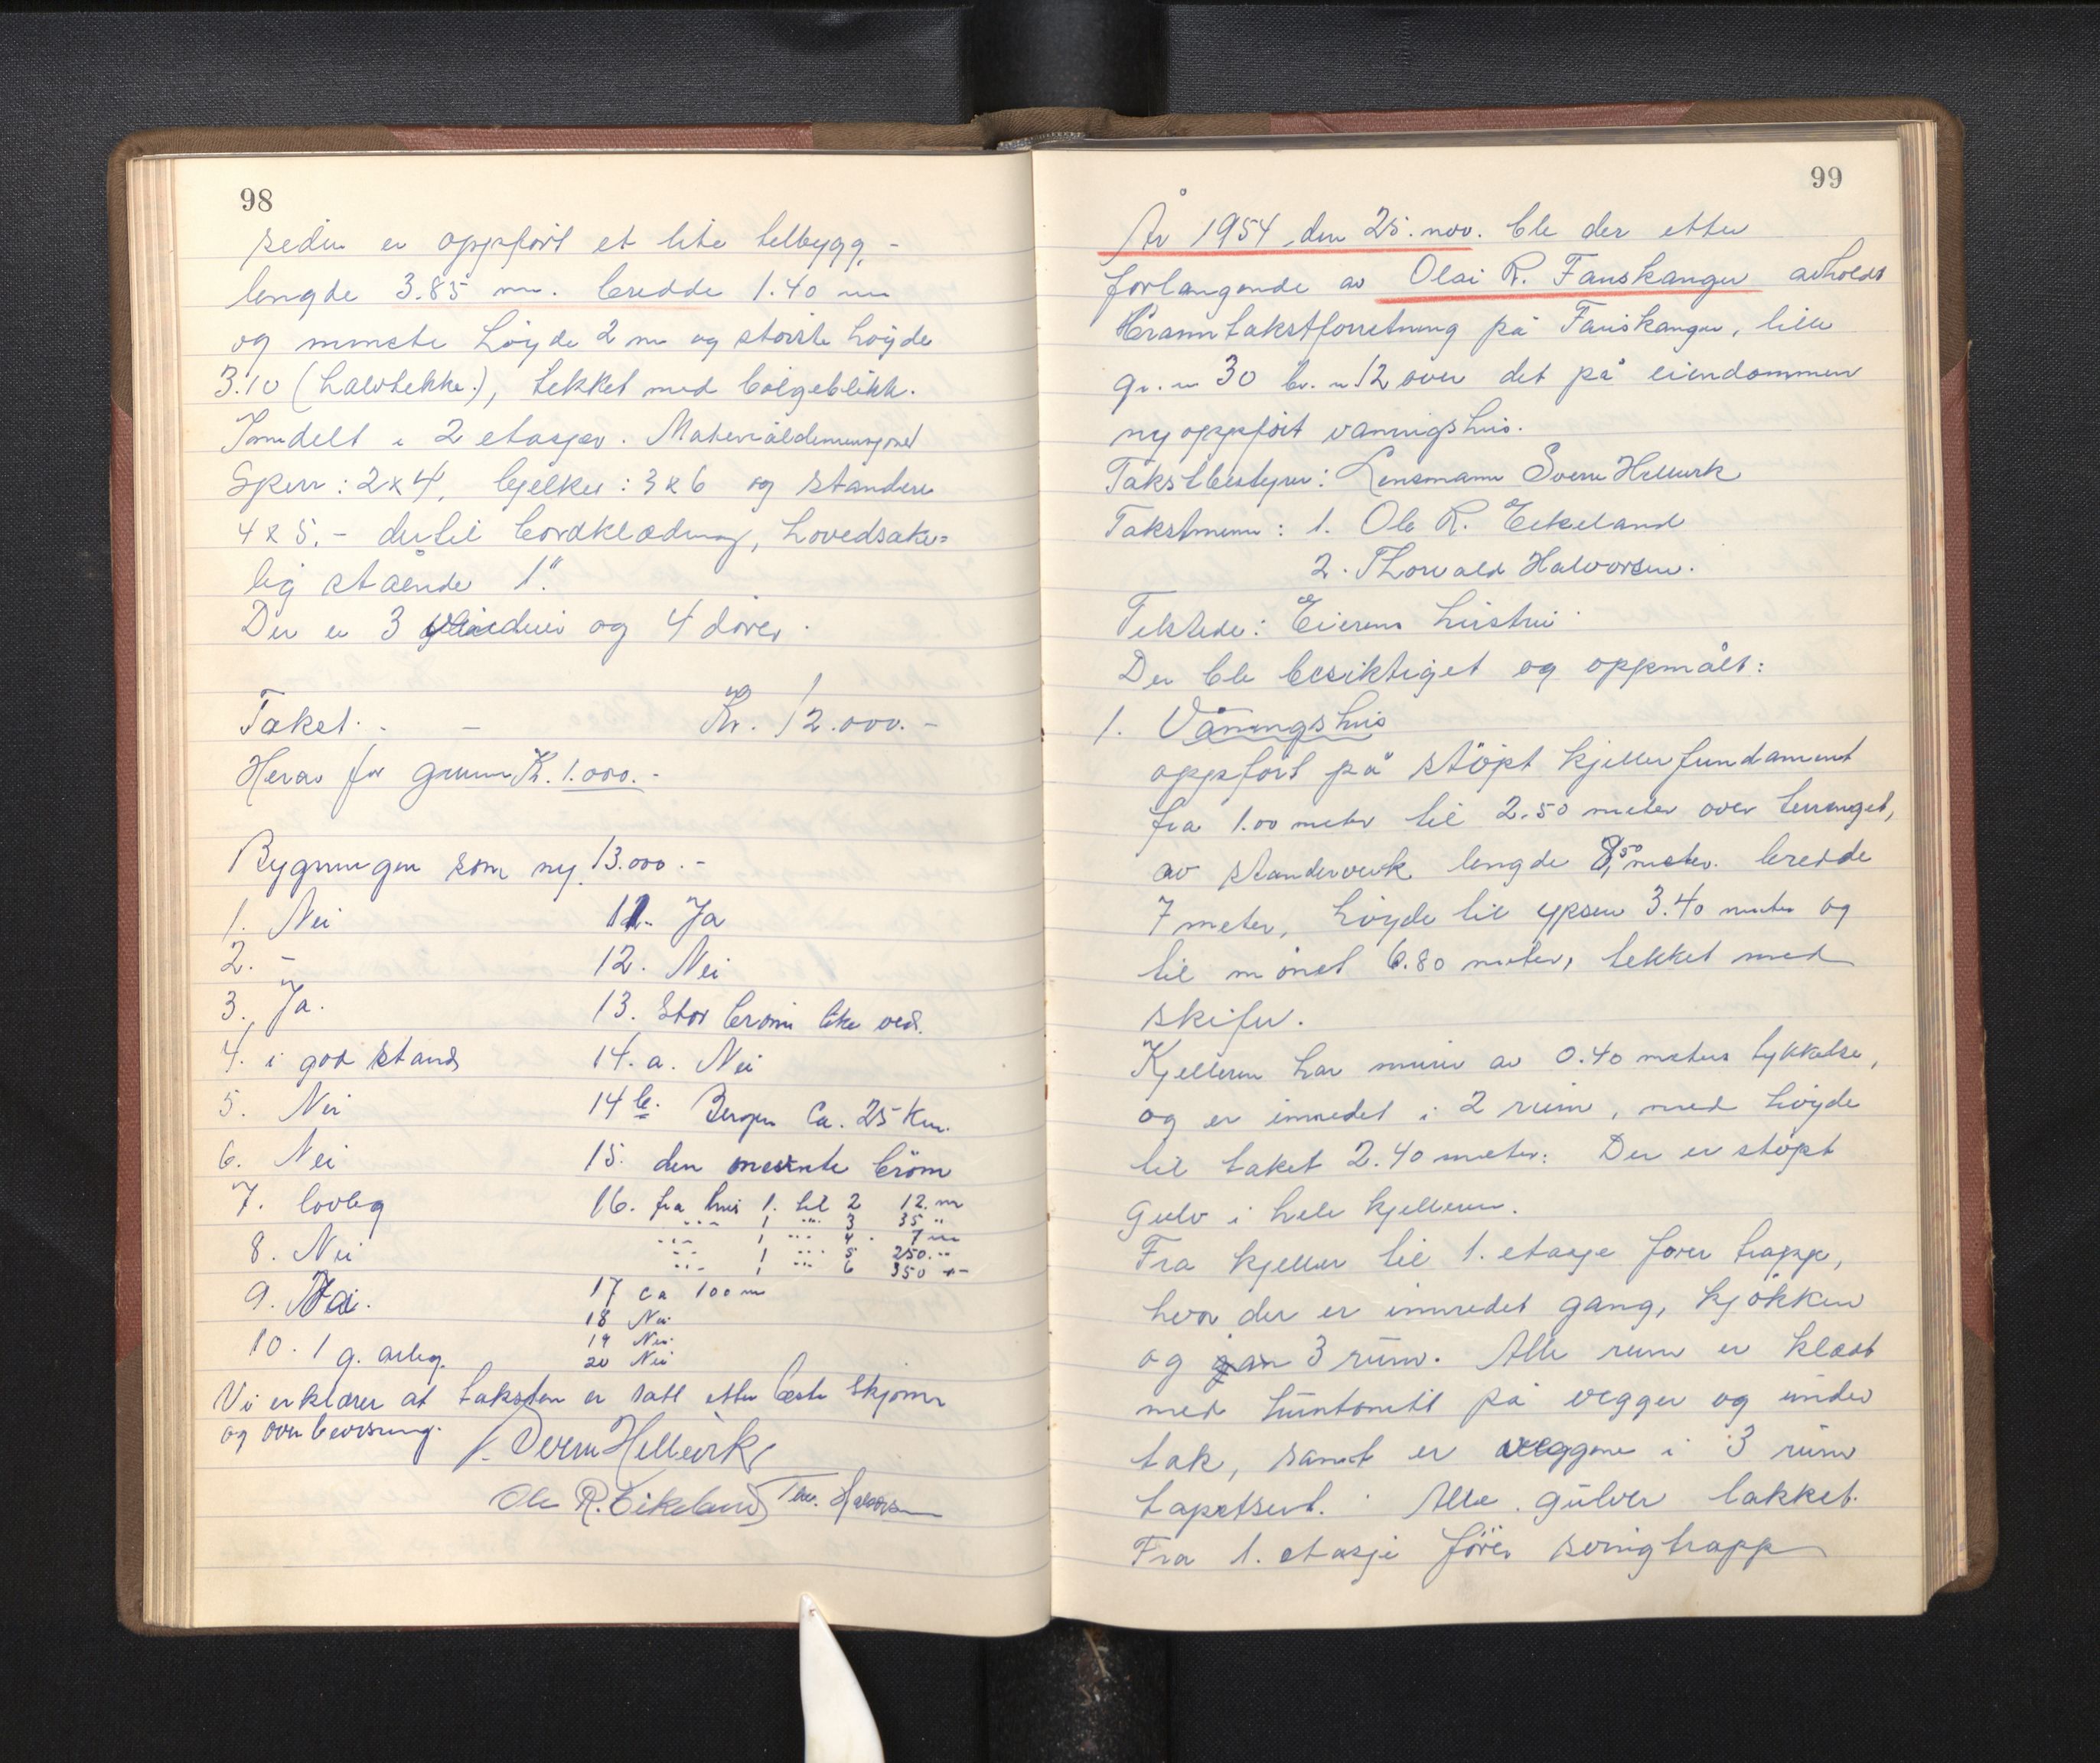 98
siden er oppført et lite tilbygg,-
lengde 3.85 m. bredde 1.40 m
og minste höyde 2 m og störste höyde
3.10 (halvtekke.), tekket med bölgeblikk.
Inndelt i 2 etasjer. Materialdimensjoner
Sperr: 2x4, bjelker: 3x6 og standere
4x5.- dertil bordklædning, hovedsake=
lig stående 1".
Der er 3 vinduer og 4 dörer.
Taket. - Kr. 12.000.-
Herav for grunn Kr. 1.000.-
Bygningen som ny 13.000.-
1. Nei
2. -"-
3. Ja.
4. i god stand
5. Nei
6. Nei
7. lovleg
8. Nei
9. Nei.
10. 1 g. årleg.
11. Ja
12. Nei
13. Stor brönn like ved.
14. a. Nei
14 b. Bergen ca. 25 km.
15. den nevnte brönn
16. fra hus 1. til 2 12. m
-"- 1 -"- 3 35 "
-"- 1 -"- 4 . 7 m
-"- 1 -"- 5 250. "
-"- 1 -"- 6 350 -"-
17 ca 100 m
18 Nei
19 Nei.
20 Nei
Vi erklærer at taksten er satt etter beste skjönn
og overbevisning.
Sverre Hellevik
Ole R. Eikeland Thv. Halvorsen
99
År 1954, den 25. nov. ble der etter
forlangende av Olai R. Fanskanger avholdt
branntakstforretning på Fanskanger, lille
gr. n 30 br. n 12 over det på eiendommen
ny oppført vaningshus.
Takstbestyrer: Lensmann Sverre Hellevik
Takstmenn: 1. Ole R. Eikeland
2. Thorvald Halvorsen.
Tilstede: Eierens hustru.
Der ble besiktiget og oppmålt:
1. Våningshus
oppført på stöpt kjellerfundament
fra 1.00 meter til 2.50 meter over terrenget,
av standerverk lengde 8,50 meter. bredde
7 meter, höyde til gesen 3.40 meter og
til mönet 6.80 meter, tekket med
skifer.
Kjelleren har murer av 0.40 meters tykkelse,
og er innredet i 2 rum, med höyde
til taket 2.40 meter. Der er stöpt
Gulv i hele kjelleren.
Fra kjeller til 1. etasje förer trapp,
hvor der er innredet gang, kjökken
og 3 rum. Alle rum er klædt
med huntonitt på vegger og under
tak, samt er veggene i 3 rum
tapetsert. Alle gulver lakket.
Fra 1. etasje förer svingtrapp